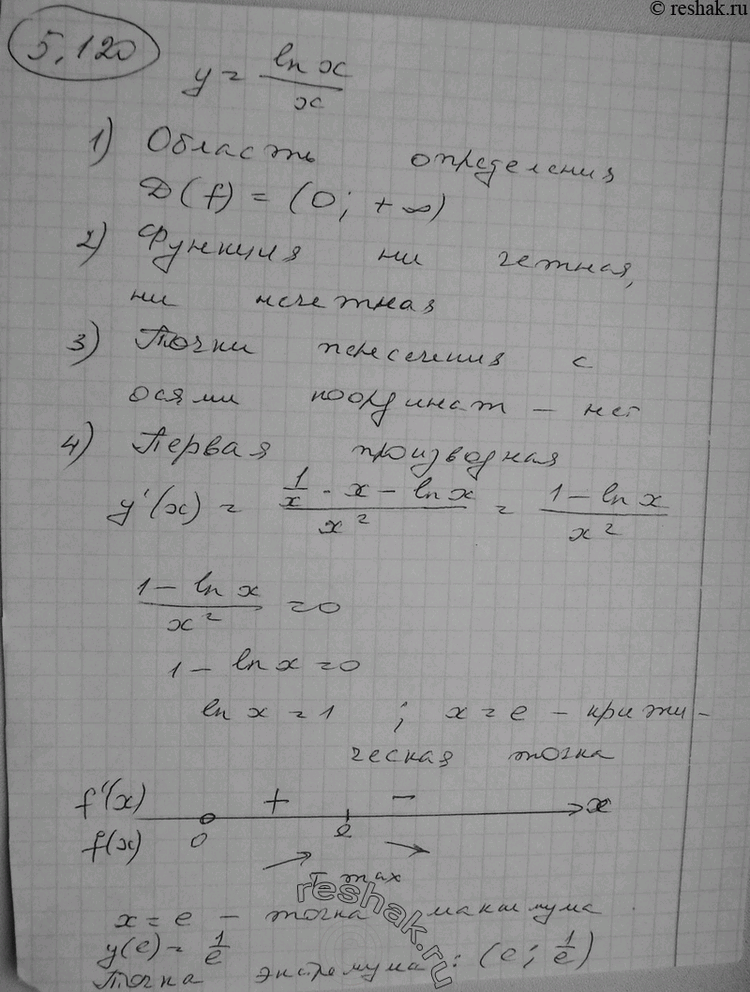 © reshak.ru
5,120
y = ln x / x
1) Область определения
D(f) = (0; +∞)
2) Функция ни четная,
ни нечетная
3) Точки пересечения с
осями координат – нет
4) Первая производная
y'(x) = (1/x · x – ln x) / x² = (1 – ln x) / x²
(1 – ln x) / x² = 0
1 – ln x = 0
ln x = 1 ; x = e – крити-
ческая точка
f'(x) + – x
f(x) 0 e
т. max
x = e – точка максимума
y(e) = 1/e
Точка экстремума: (e; 1/e)
reshak.ru